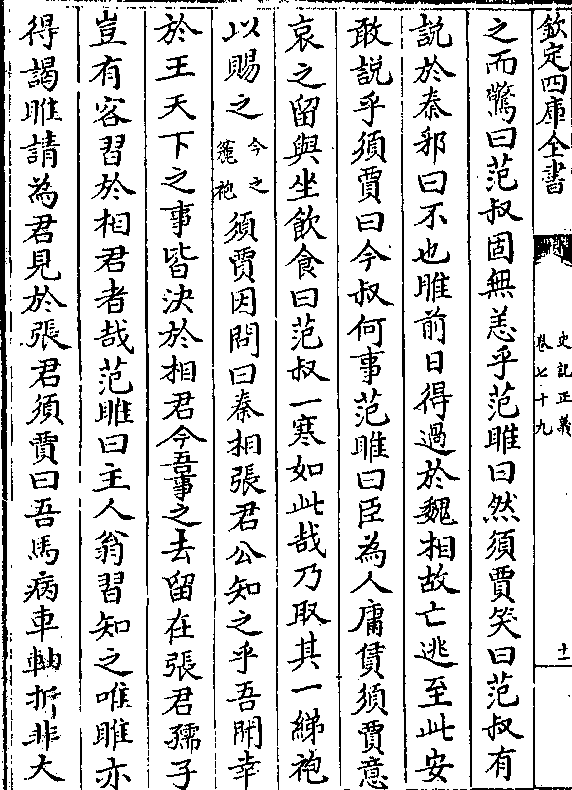 欽定四庫全書
史記正義
卷七十九
十一
之而驚曰范叔固無恙乎范睢曰然須賈笑曰范叔有
説於秦邪曰不也睢前日得過於魏相故亡逃至此安
敢説乎須賈曰今叔何事范睢曰臣為人庸賃須賈意
哀之留與坐飲食曰范叔一寒如此哉乃取其一綈袍
以賜之今之麄袍須賈因問曰秦相張君公知之乎吾聞幸
於王天下之事皆決於相君今吾事之去留在張君孺子
豈有客習於相君者哉范睢曰主人翁習知之唯睢亦
得謁睢請為君見於張君須賈曰吾馬病車軸折非大